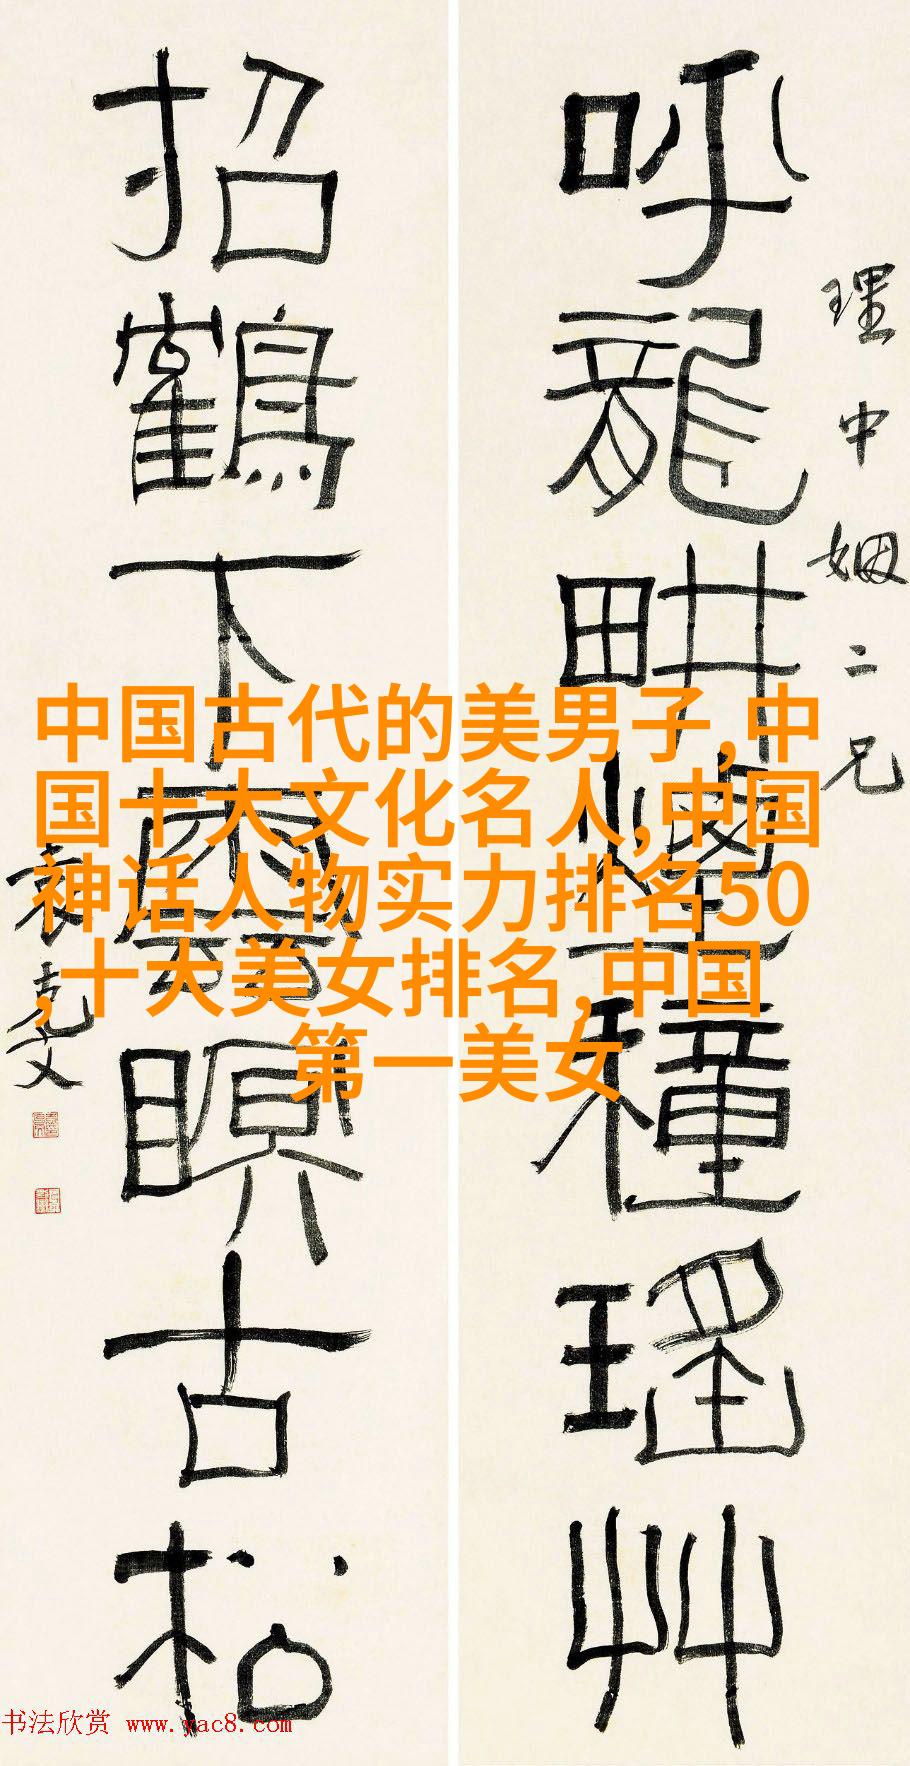 理中姻二兄
呼龍畊煙種瑤艸
招鶴下雲瞑古松
袁克文
中国古代的美男子,中
国十大文化名人,中国
神话人物实力排名50
,十大美女排名,中国
第一美女
书法欣赏 www.yac8.com